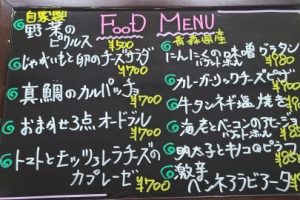 FOOD MENU
自家製
野菜の
ピクルス
¥500
じゃがいもと卵のチーズサラダ
¥700
真鯛のカルパッチョ
¥700
おまかせ3点オードブル
¥700
トマトとモッツァレラチーズの
カプレーゼ ¥700
にんにくの味噌グラタン
バケット添え ¥980
カレーガーリックチーズピザ
牛タンネギ塩焼き
海老とベーコンのアヒージョ
バケット添え
明太子とキノコのピラフ
激辛
ペンネアラビアータ